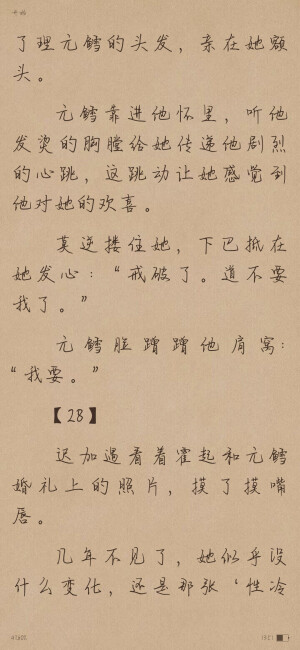 了理元鳕的头发，亲在她额
头。
元鳕靠进他怀里，听他
发烫的胸膛给她传递他剧烈
的心跳，这跳动让她感觉到
他对她的欢喜。
莫逆搂住她，下巴抵在
她发心：“戒破了。道不要
我了。”
元鳕脸蹭蹭他肩窝：
“我要。”
【28】
迟加遇看着霍起和元鳕
婚礼上的照片，摸了摸嘴
唇。
几年不见了，她似乎没
什么变化，还是那张‘性冷